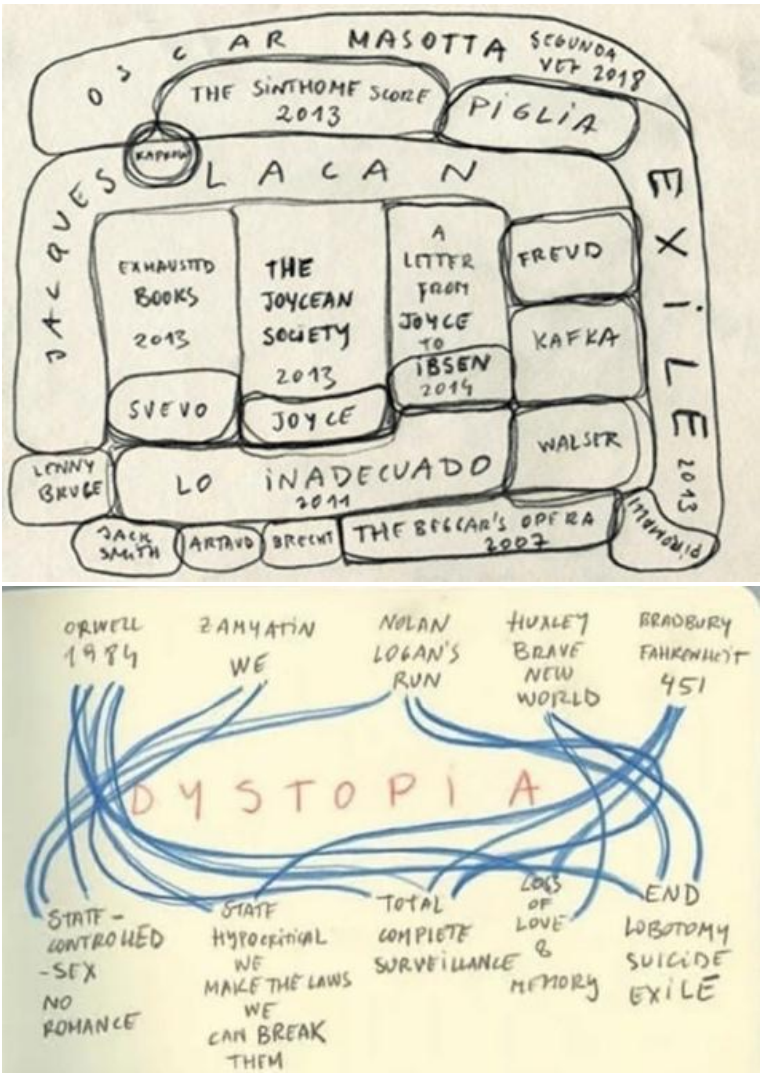 OSCAR MASOTTA SEGUNDA
VEZ 2018
THE SINTHOME SCORE
2013
PIGLIA
KAPROW
JACQUES LACAN
EXILE 2013
EXHAUSTED
BOOKS
2013
THE
JOYCEAN
SOCIETY
2013
A
LETTER
FROM
JOYCE
TO
IBSEN
2014
FREUD
KAFKA
SVEVO
JOYCE
WALSER
LENNY
BRUCE
LO INADECUADO
2011
JACK
SMITH
ARTAUD
BRECHT
THE BEGGAR'S OPERA
2007
PIROMALLI
ORWELL
1984
ZAMYATIN
WE
NOLAN
LOGAN'S
RUN
HUXLEY
BRAVE
NEW
WORLD
BRADBURY
FAHRENHEIT
451
DYSTOPIA
STATE-
CONTROLLED
-SEX
NO
ROMANCE
STATE
HYPOCRITICAL
WE
MAKE THE LAWS
WE
CAN BREAK
THEM
TOTAL
COMPLETE
SURVEILLANCE
LOSS
OF
LOVE
&
MEMORY
END
LOBOTOMY
SUICIDE
EXILE